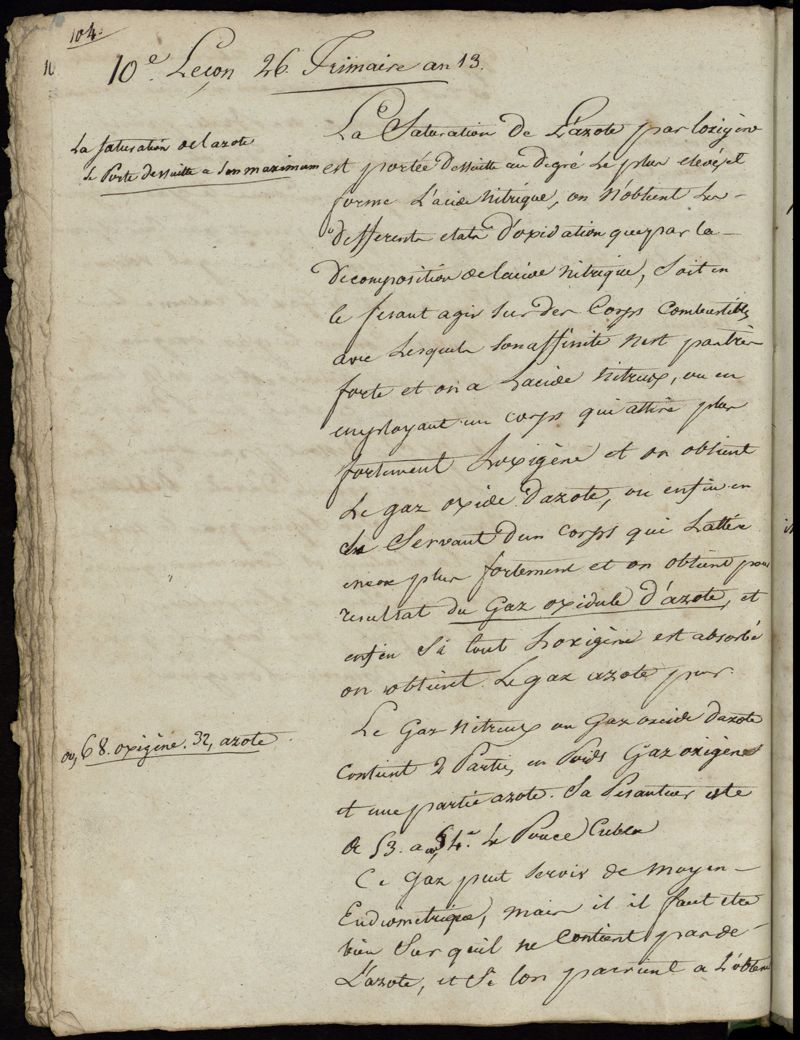 104.
10e. Leçon 26 Frimaire an 13.
La saturation de lazote
se Porte dessuitte a son maximum
La Saturation de L'azote par loxigène
est portée dessuitte au degré Le plus elevé, et
forme L'acide Nitrique, on N'obtient Les
differents etats d'oxidation que par la
decomposition de lacide Nitrique, Soit en
le fesant agir Sur des Corps Combustibles
avec Lesquels Son affinité N'est pas très
forte et on a Lacide Nitreux, ou en
employant un corps qui attire plus
fortement Loxigène et on obtient
Le gaz oxide d'azote, ou enfin en
Se Servant d'un corps qui Lattire
encore plus fortement et on obtient pour
resultat du Gaz oxidule d'azote, et
enfin Si tout Loxigène est absorbé
on obtient Le gaz azote pur.
Le Gaz Nitreux ou Gaz oxide d'azote
Contient 2 Parties, en Poids Gaz oxigène
et une partie azote. Sa Pesanteur est
de 53. a 54e. Le Pouce Cube
ou, 68. oxigène. 32, azote
Ce Gaz peut servir de moyen
Eudiometrique, mais il il faut etre
bien Sur qu'il ne Contient pas de
L'azote, et Si lon parvient a L'obtenir